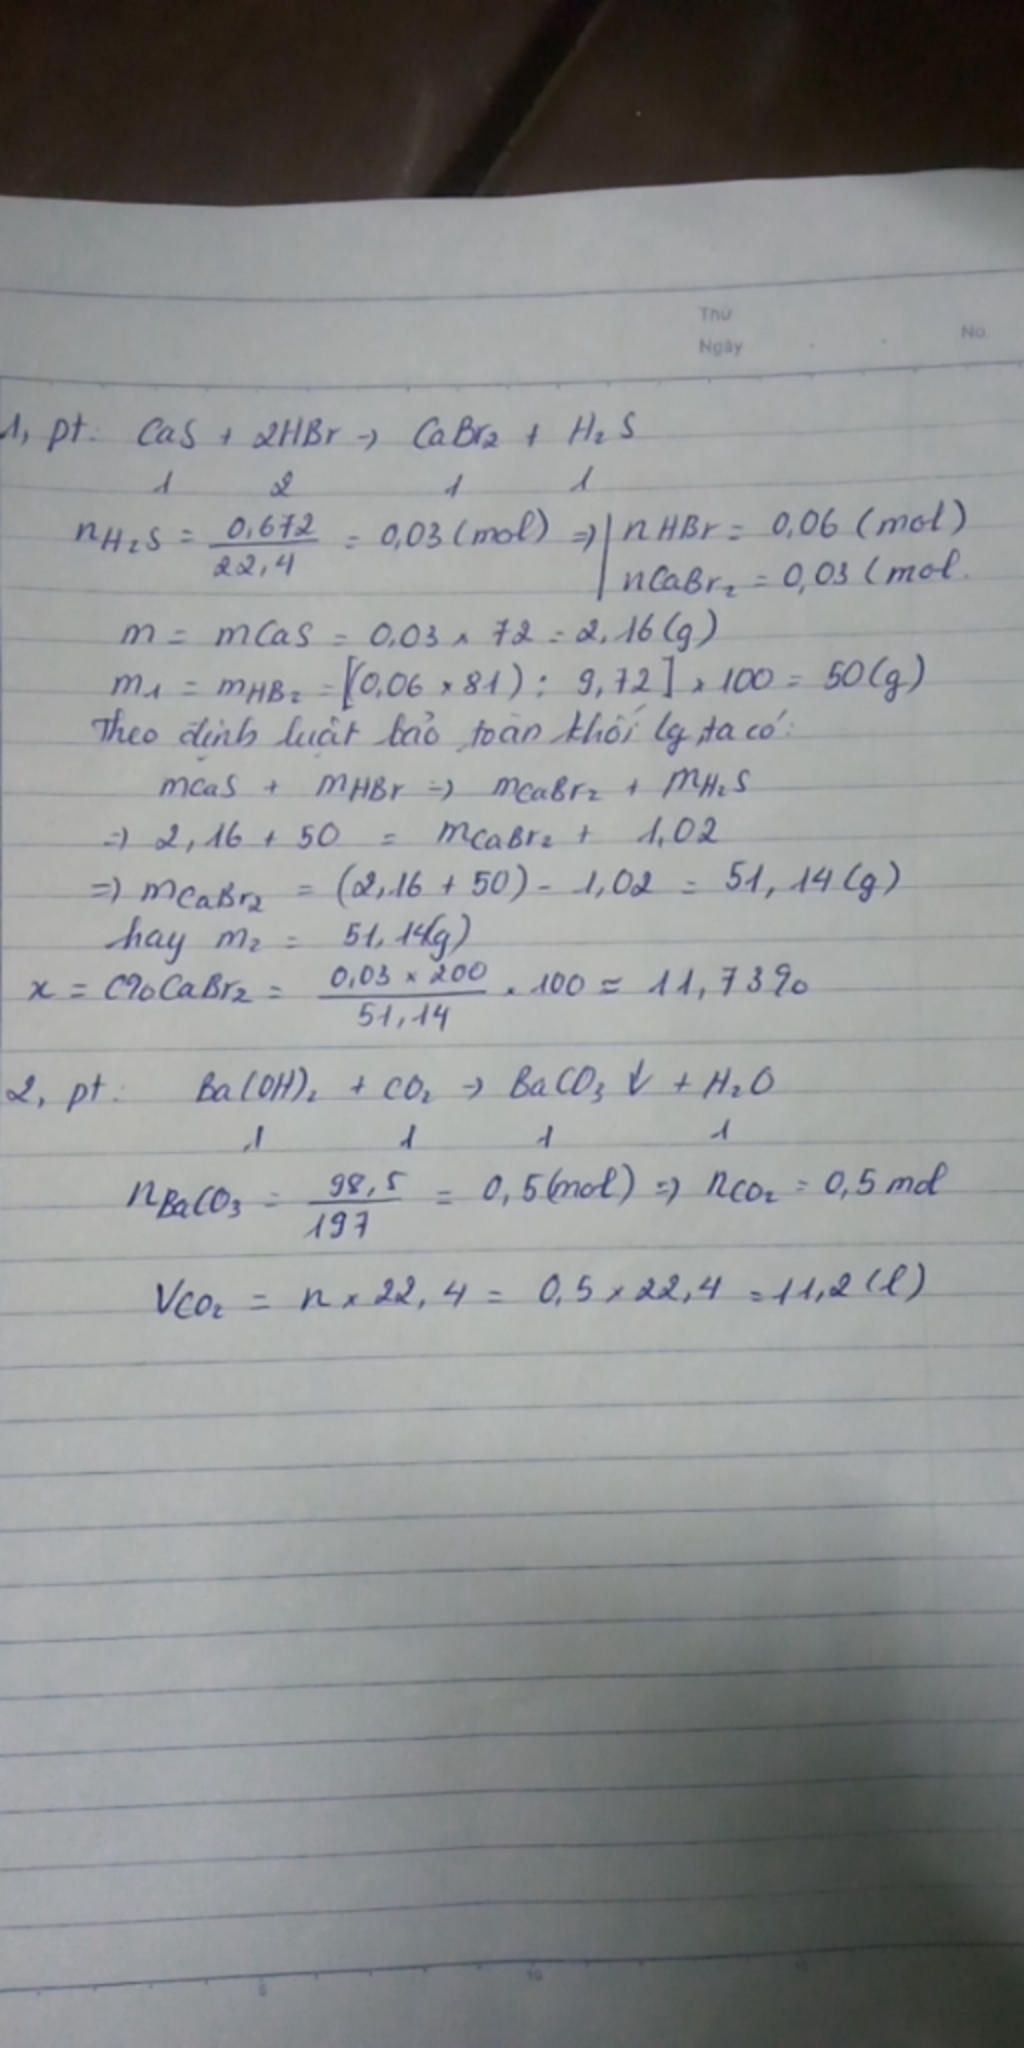 Thứ
Ngày
No.
1, pt: CaS + 2HBr → CaBr₂ + H₂S
1 2 1 1
nH₂S = 0,672/22,4 = 0,03 (mol) => | nHBr = 0,06 (mol)
nCaBr₂ = 0,03 (mol.
m = mCaS = 0,03 × 72 = 2,16 (g)
m₁ = mHB₂ = [(0,06 × 81) : 9,72] × 100 = 50 (g)
Theo định luật bảo toàn khối lg, ta có:
mCaS + mHBr => mCaBr₂ + mH₂S
=> 2,16 + 50 = mCaBr₂ + 1,02
=> mCaBr₂ = (2,16 + 50) - 1,02 = 51,14 (g)
hay m₂ = 51,14(g)
x = C%CaBr₂ = 0,03 × 200/51,14 . 100 = 11,73%
2, pt: Ba(OH)₂ + CO₂ → BaCO₃ ↓ + H₂O
1 1 1 1
nBaCO₃ = 98,5/197 = 0,5 (mol) => nCO₂ = 0,5 mol
VCO₂ = n × 22,4 = 0,5 × 22,4 = 11,2 (l)
10